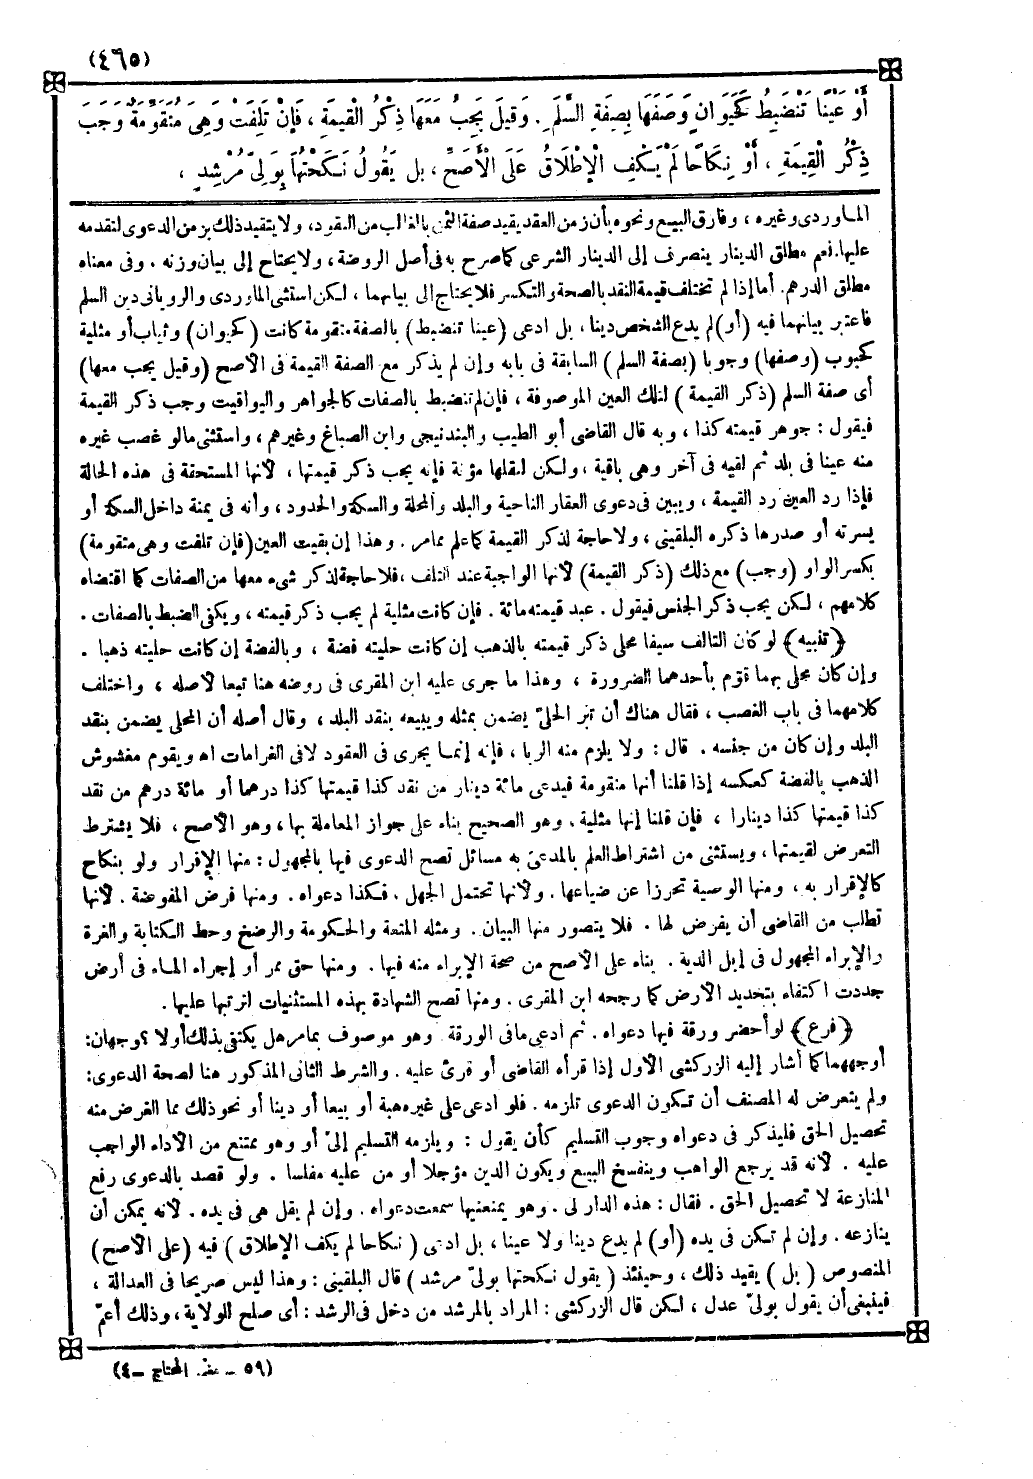 (٤٦٥)
أَوْ عَيْنًا تَنْضَبِطُ كَحَيَوَانٍ وَصَفَهَا بِصِفَةِ السَّلَمِ. وَقِيلَ يَجِبُ مَعَهَا ذِكْرُ الْقِيمَةِ ، فَإِنْ تَلِفَتْ وَهِيَ مُتَقَوِّمَةٌ وَجَبَ
ذِكْرُ الْقِيمَةِ ، أَوْ نِكَاحًا لَمْ يَكْفِ الْإِطْلَاقُ عَلَى الْأَصَحِّ ، بل يَقُولُ نَكَحْتُهَا بِوَلِيٍّ مُرْشِدٍ ،
الماوردى وغيره ، وفارق البيع ونحوه بأن زمن العقد يقيد صفة الثمن بالغالب من النقود، ولا يتقيد ذلك بزمن الدعوى لتقدمه
عليها. نعم مطلق الدينار ينصرف إلى الدينار الشرعى كما صرح به فى أصل الروضة ، ولا يحتاج إلى بيان وزنه . وفى معناه
مطلق الدرهم. أما إذا لم تختلف قيمة النقد بالصحة والتكسر فلا يحتاج إلى بيانهما ، لكن استثنى الماوردى والرويانى دين السلم
فاعتبر بيانهما فيه (أو) لم يدع الشخص دينا ، بل ادعى (عينا تنضبط) بالصفة متقومة كانت (كحيوان) وثياب أو مثلية
كحبوب (وصفها) وجوبا (بصفة السلم) السابقة فى بابه وإن لم يذكر مع الصفة القيمة فى الأصح (وقيل يجب معها)
أى صفة السلم (ذكر القيمة) لتلك العين الموصوفة ، فإن لم تنضبط بالصفات كالجواهر واليواقيت وجب ذكر القيمة
فيقول : جوهر قيمته كذا ، وبه قال القاضى أبو الطيب والبندنيجى وابن الصباغ وغيرهم ، واستثنى مالو غصب غيره
منه عينا فى بلد ثم لقيه فى آخر وهى باقية ، ولكن لنقلها مؤنة فإنه يجب ذكر قيمتها ، لأنها المستحقة فى هذه الحالة
فإذا رد العين رد القيمة ، ويبين فى دعوى العقار الناحية والبلد والمحلة والسكة والحدود ، وأنه فى يمنة داخل السكة أو
يسرته أو صدرها ذكره البلقينى ، ولا حاجة لذكر القيمة كما علم ممامر . وهذا إن بقيت العين (فإن تلفت وهى متقومة)
بكسر الواو (وجب) مع ذلك (ذكر القيمة) لأنها الواجبة عند التلف ، فلا حاجة لذكر شىء معها من الصفات كما اقتضاه
كلامهم ، لكن يجب ذكر الجنس فيقول . عبد قيمته مائة . فإن كانت مثلية لم يجب ذكر قيمته ، ويكفى الضبط بالصفات .
﴿تنبيه﴾ لو كان التالف سيفا محلى ذكر قيمته بالذهب إن كانت حليته فضة ، وبالفضة إن كانت حليته ذهبا .
وإن كان محلى بهما قوّم بأحدهما للضرورة ، وهذا ما جرى عليه ابن المقرى فى روضه هنا تبعا لأصله ، واختلف
كلامهما فى باب الغصب ، فقال هناك أن تبر الحلىّ يضمن بمثله ويبيعه بنقد البلد ، وقال أصله أن المحلى يضمن بنقد
البلد وإن كان من جنسه . قال : ولا يلزم منه الربا ، فإنه إنما يجرى فى العقود لافى الغرامات اه ويقوم مغشوش
الذهب بالفضة كعكسه إذا قلنا أنها متقومة فيدعى مائة دينار من نقد كذا قيمتها كذا درهما أو مائة درهم من نقد
كذا قيمتها كذا دينارا ، فإن قلنا إنها مثلية . وهو الصحيح بناء على جواز المعاملة بها ، وهو الأصح ، فلا يشترط
التعرض لقيمتها ، ويستثنى من اشتراط العلم بالمدعى به مسائل تصح الدعوى فيها بالمجهول : منها الإقرار ولو بنكاح
كالإقرار به ، ومنها الوصية تحرزا عن ضياعها . ولأنها تحتمل الجهل . فكذا دعواه . ومنها فرض المفوضة . لأنها
تطلب من القاضى أن يفرض لها . فلا يتصور منها البيان . ومثله المتعة والحكومة والرضخ وحط الكتابة والغرة
والإبراء المجهول فى إبل الدية . بناء على الأصح من صحة الإبراء منه فيها . ومنها حق ممر أو إجراء الماء فى أرض
حددت اكتفاء بتحديد الأرض كما رجحه ابن المقرى . ومنها تصح الشهادة بهذه المستثنيات لترتبها عليها .
﴿فرع﴾ لو أحضر ورقة فيها دعواه . ثم ادعى مافى الورقة وهو موصوف بمامر هل يكتفى بذلك أولا ؟ وجهان:
أوجههما كما أشار إليه الزركشى الأول إذا قرأه القاضى أو قرئ عليه . والشرط الثانى المذكور هنا لصحة الدعوى:
ولم يتعرض له المصنف أن تكون الدعوى تلزمه . فلو ادعى على غيره هبة أو بيعا أو دينا أو نحو ذلك مما الغرض منه
تحصيل الحق فليذكر فى دعواه وجوب التسليم كأن يقول : ويلزمه التسليم إلىّ أو وهو ممتنع من الأداء الواجب
عليه . لأنه قد يرجع الواهب وينفسخ البيع ويكون الدين مؤجلا أو من عليه مفلسا . ولو قصد بالدعوى رفع
المنازعة لا تحصيل الحق . فقال : هذه الدار لى . وهو يمنعنيها سمعت دعواه . وإن لم يقل هى فى يده . لأنه يمكن أن
ينازعه . وإن لم تكن فى يده (أو) لم يدع دينا ولا عينا ، بل ادعى (نكاحا لم يكف الإطلاق) فيه (على الأصح)
المنصوص (بل) يقيد ذلك ، وحينئذ (يقول نكحتها بولىّ مرشد) قال البلقينى : وهذا ليس صريحا فى العدالة ،
فينبغى أن يقول بولىّ عدل ، لكن قال الزركشى : المراد بالمرشد من دخل فى الرشد : أى صلح للولاية ، وذلك أعمّ
(٥٩ – مغنى المحتاج – ٤)